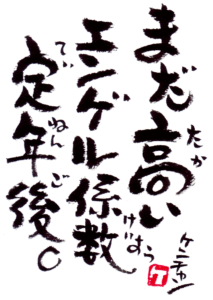 まだ高い
たか
エンゲル係数
けいすう
定年後。
ていねんご
ケンチャン
ケ